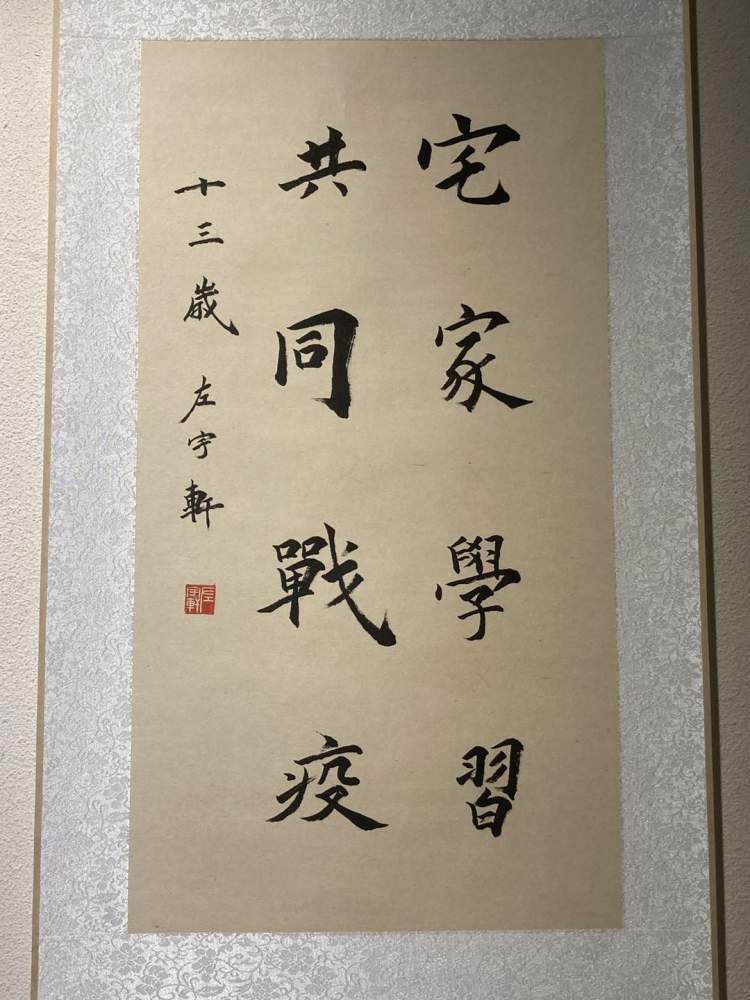 宅家學習
共同戰疫
十三歲 左宇軒
左宇軒